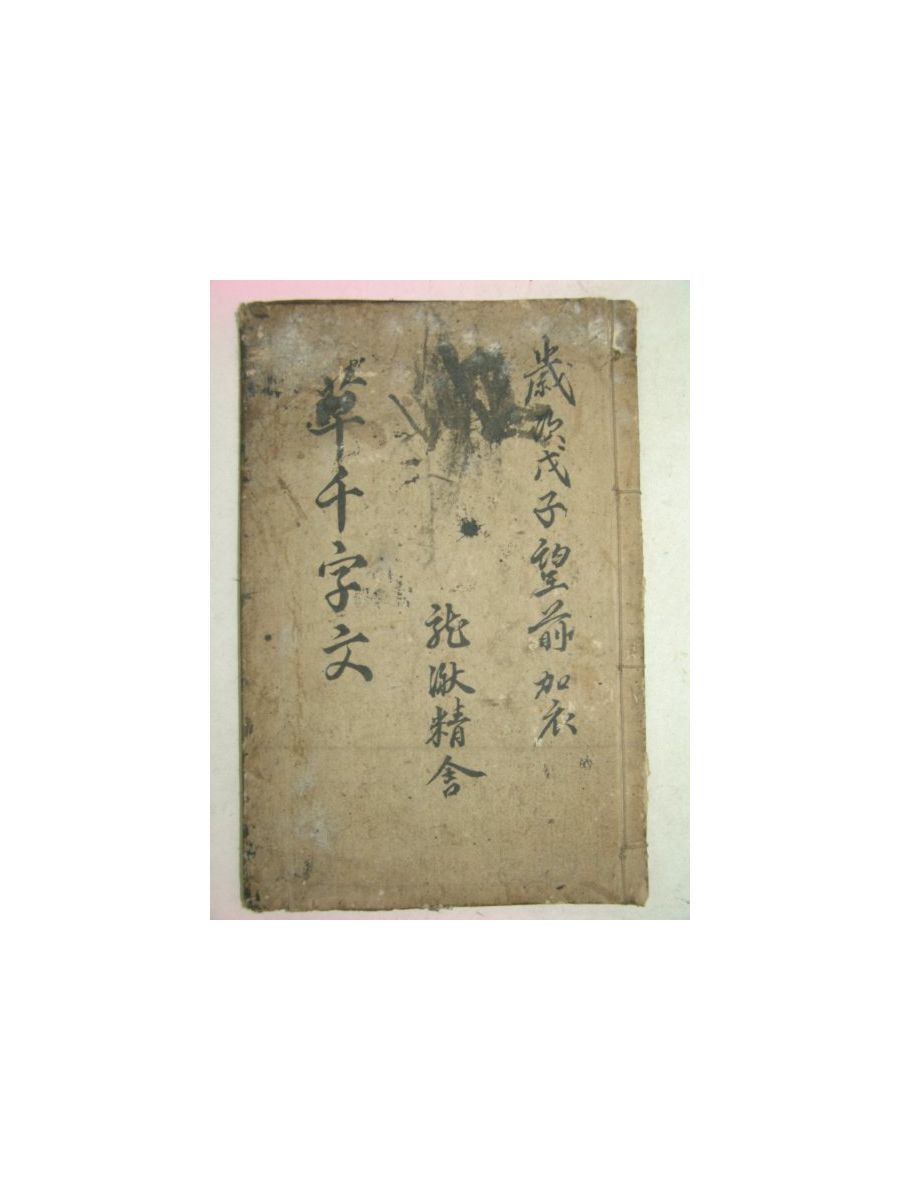 歲次戊子望前加衣
龍湫精舍
草千字文